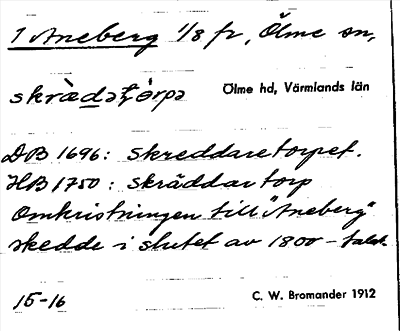 1 Aneberg 1/8 fr, Ölme sn,
skræ̀dat̨órpə Ölme hd, Värmlands län
DB 1696: Skreddaretorpet.
HB 1750: Skräddartorp
Omkristningen till "Aneberg"
skedde i slutet av 1800-talet
15-16 C. W. Bromander 1912